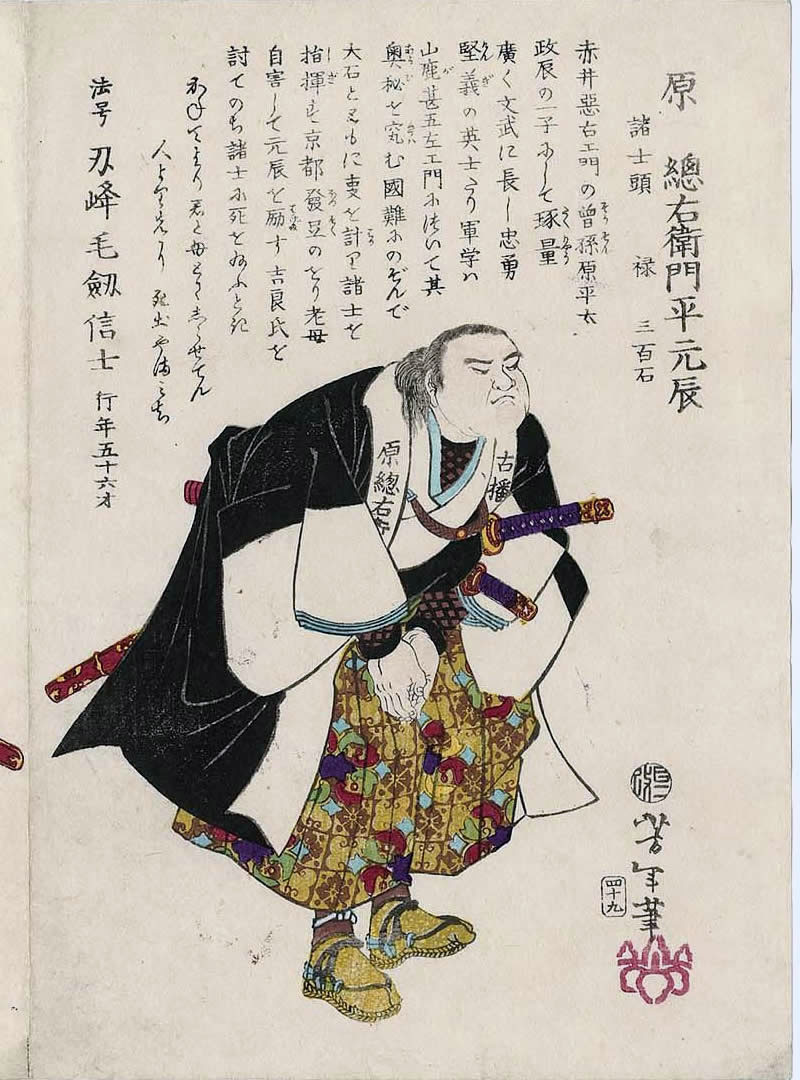 原 總右衛門平元辰
諸士頭 禄 三百石
赤井惡右エ門の曽孫原平太
政辰の一子にして琢量
廣く文武に長し忠勇
堅義の英士たり軍学ハ
山鹿甚五左エ門に次いて其
奥秘を究む國難にのぞんで
大石とともに事を計り諸士を
指揮す京都發足のをり老母
自害して元辰を励す吉良氏を
討てのち諸士に死を給ふとき
君と母
人
法号 刃峰毛劔信士 行年五十六才
原總右
古播
芳年筆
四十九